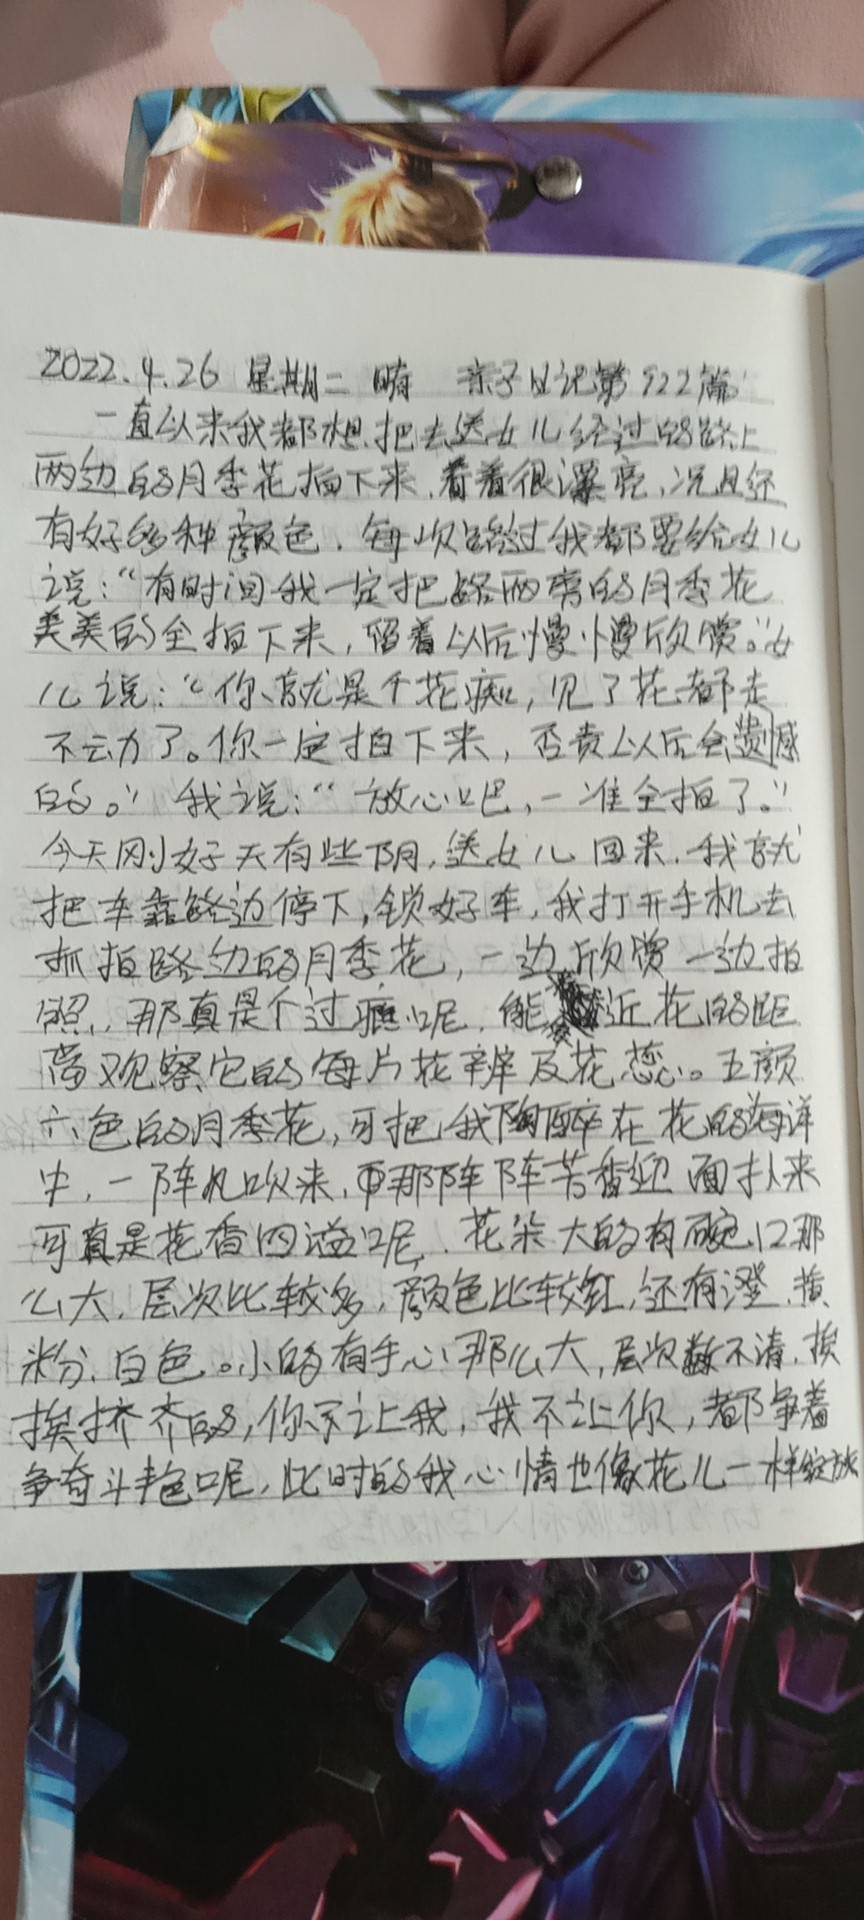 2022.4.26 星期二 晴 亲子日记第922篇
一直以来我都想把去送女儿经过的路上
两边的月季花拍下来，看着很漂亮，况且还
有好多种颜色，每次路过我都要给女儿
说：“有时间我一定把路两旁的月季花
美美的全拍下来，留着以后慢慢欣赏。”女
儿说：“你就是个花痴，见了花都走
不动了。你一定拍下来，否责以后会遗憾
的。”我说：“放心吧，一准全拍了。”
今天刚好天有些阴，送女儿回来，我就
把车靠路边停下，锁好车，我打开手机去
抓拍路边的月季花，一边欣赏一边拍
照，那真是个过瘾呢，能近花的距
离观察它的每片花辨及花蕊。五颜
六色的月季花，可把我陶醉在花的海洋
中，一阵风吹来，更那阵阵芳香迎面扑来
可真是花香四溢呢，花朵大的有碗口那
么大，层次比较多，颜色比较红，还有澄、黄、
粉、白色。小的有手心那么大，层次数不清，挨
挨挤齐的，你不让我，我不让你，都争着
争奇斗艳呢，此时的我心情也像花儿一样绽放